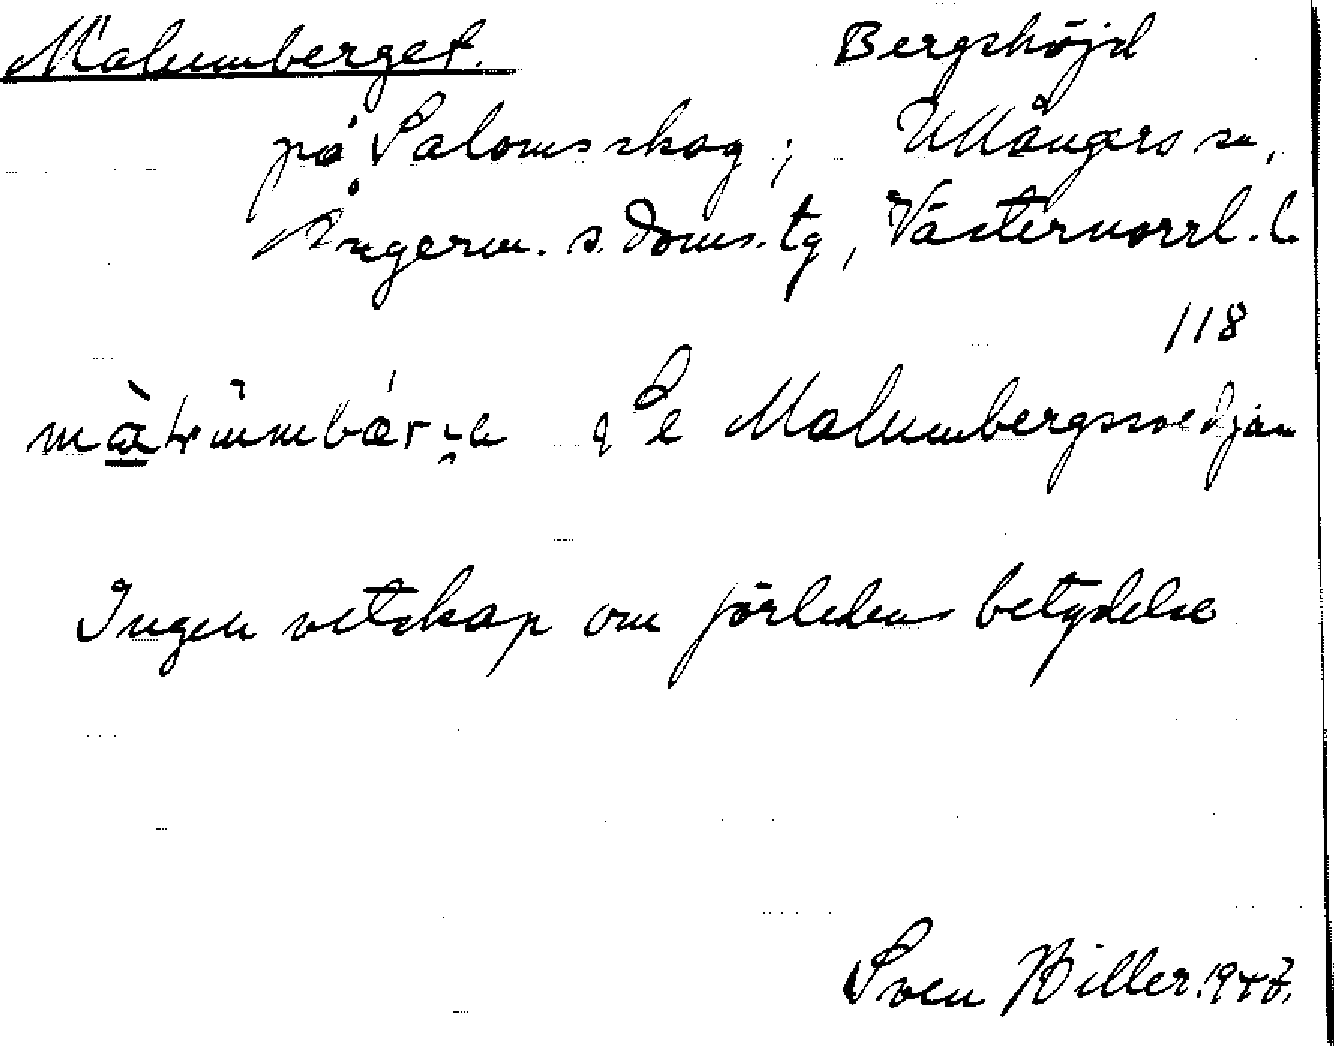 Malumberget. Bergshöjd
på Saloms skog; Ullångers sn,
Ångerm. s. doms. tg, Västernorrl. l.
118
Se Malumbergssvedjan
Ingen vetskap om förledens betydelse
Sven Hiller. 1947.